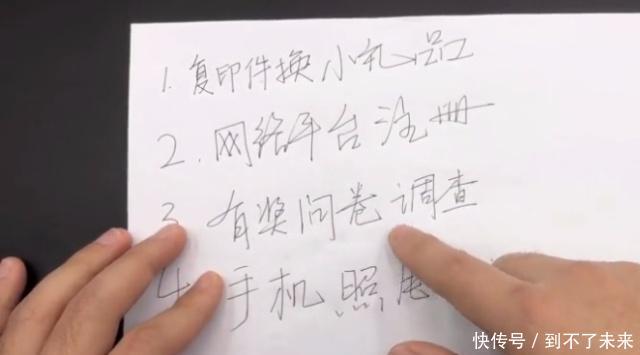 1. 复印件换小礼品
2. 网络平台注册
3 有奖问卷调查
4 手机照
快传号 / 到不了未来